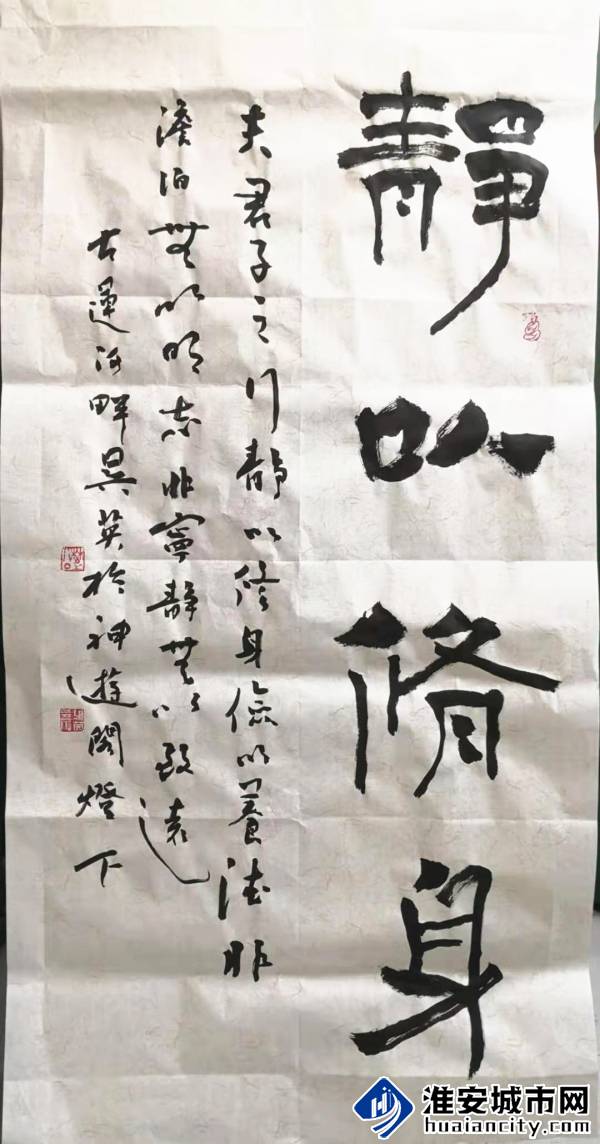 靜以脩身
夫君子之行靜以脩身儉以養德非
澹泊無以明志非寧静無以致遠
古運河畔吴英於神遊閣燈下
淮安城市网
huaiancity.com